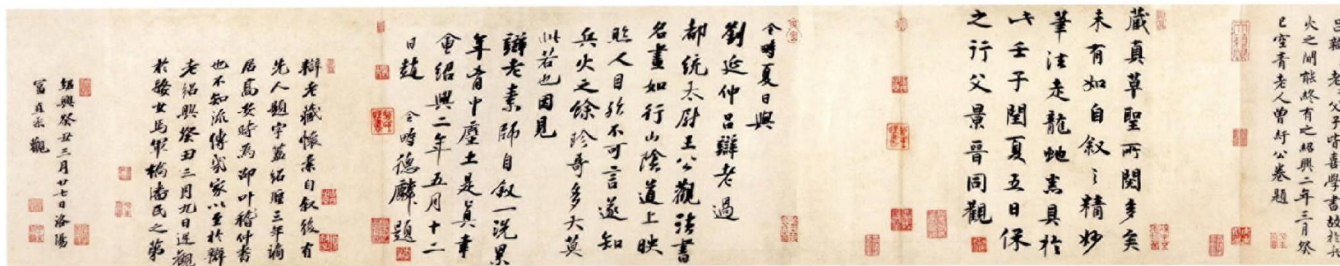 呂辯老父子皆喜學書故於兵
火之間能終有之紹興二年三月癸
巳空青老人曾紆公卷題
藏真草聖所閱多矣
未有如自叙之精妙
筆法走龍蛇悉具於
此壬子閏夏五日保
之行父景晉同觀
令時夏日與
劉延仲呂辯老過
都統太尉王公觀法書
名畫如行山陰道上映
照人目殆不可言遂知
兵火之餘珍奇多大莫
此若也因見
辯老素師自叙一洗累
年胷中塵土是真幸
會紹興二年五月十二
日趙 令時德麟 題
辯老藏懷素自叙後有
先人題字蓋紹聖三年謫
居高安時為邵叶稽仲書
也不知流傳幾家以至於辯
老紹興癸丑三月九日遅觀
於婺女馬軍橋潘氏之第
紹興癸丑三月廿七日洛陽
富直柔觀